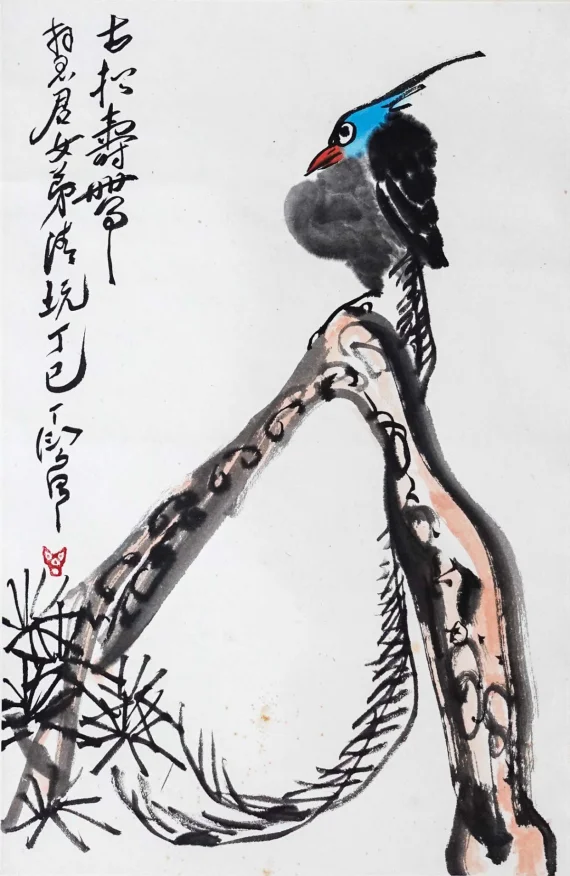 古松壽帶
慧君女弟清玩丁巳丁衍庸